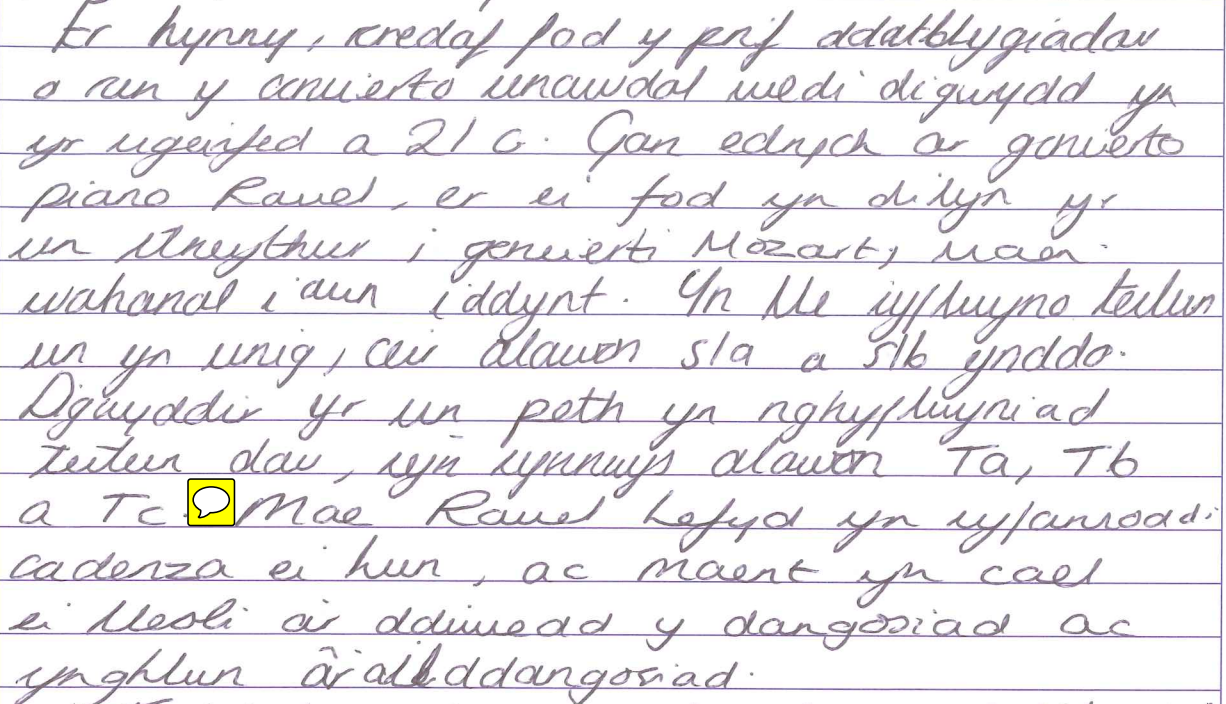 Er hynny, credaf fod y prif ddatblygiadau
o ran y concierto unawdol wedi digwydd yn
yr ugeinfed a 21 C. Gan edrych ar goncierto
piano Ravel, er ei fod yn dilyn yr
un strwythur i goncierti Mozart, maen
wahanol iawn iddynt. Yn lle cyflwyno testun
un yn unig, ceir alawon S1a a S1b ynddo.
Digwyddir yr un peth yn nghyflwyniad
testun dau, gyn cynnwys alawon Ta, Tb
a Tc. Mae Ravel hefyd yn cyfansoddi
cadenza ei hun, ac maent yn cael
ei lleoli ar ddiwedd y dangosiad ac
ynghlun âr ailddangosiad.